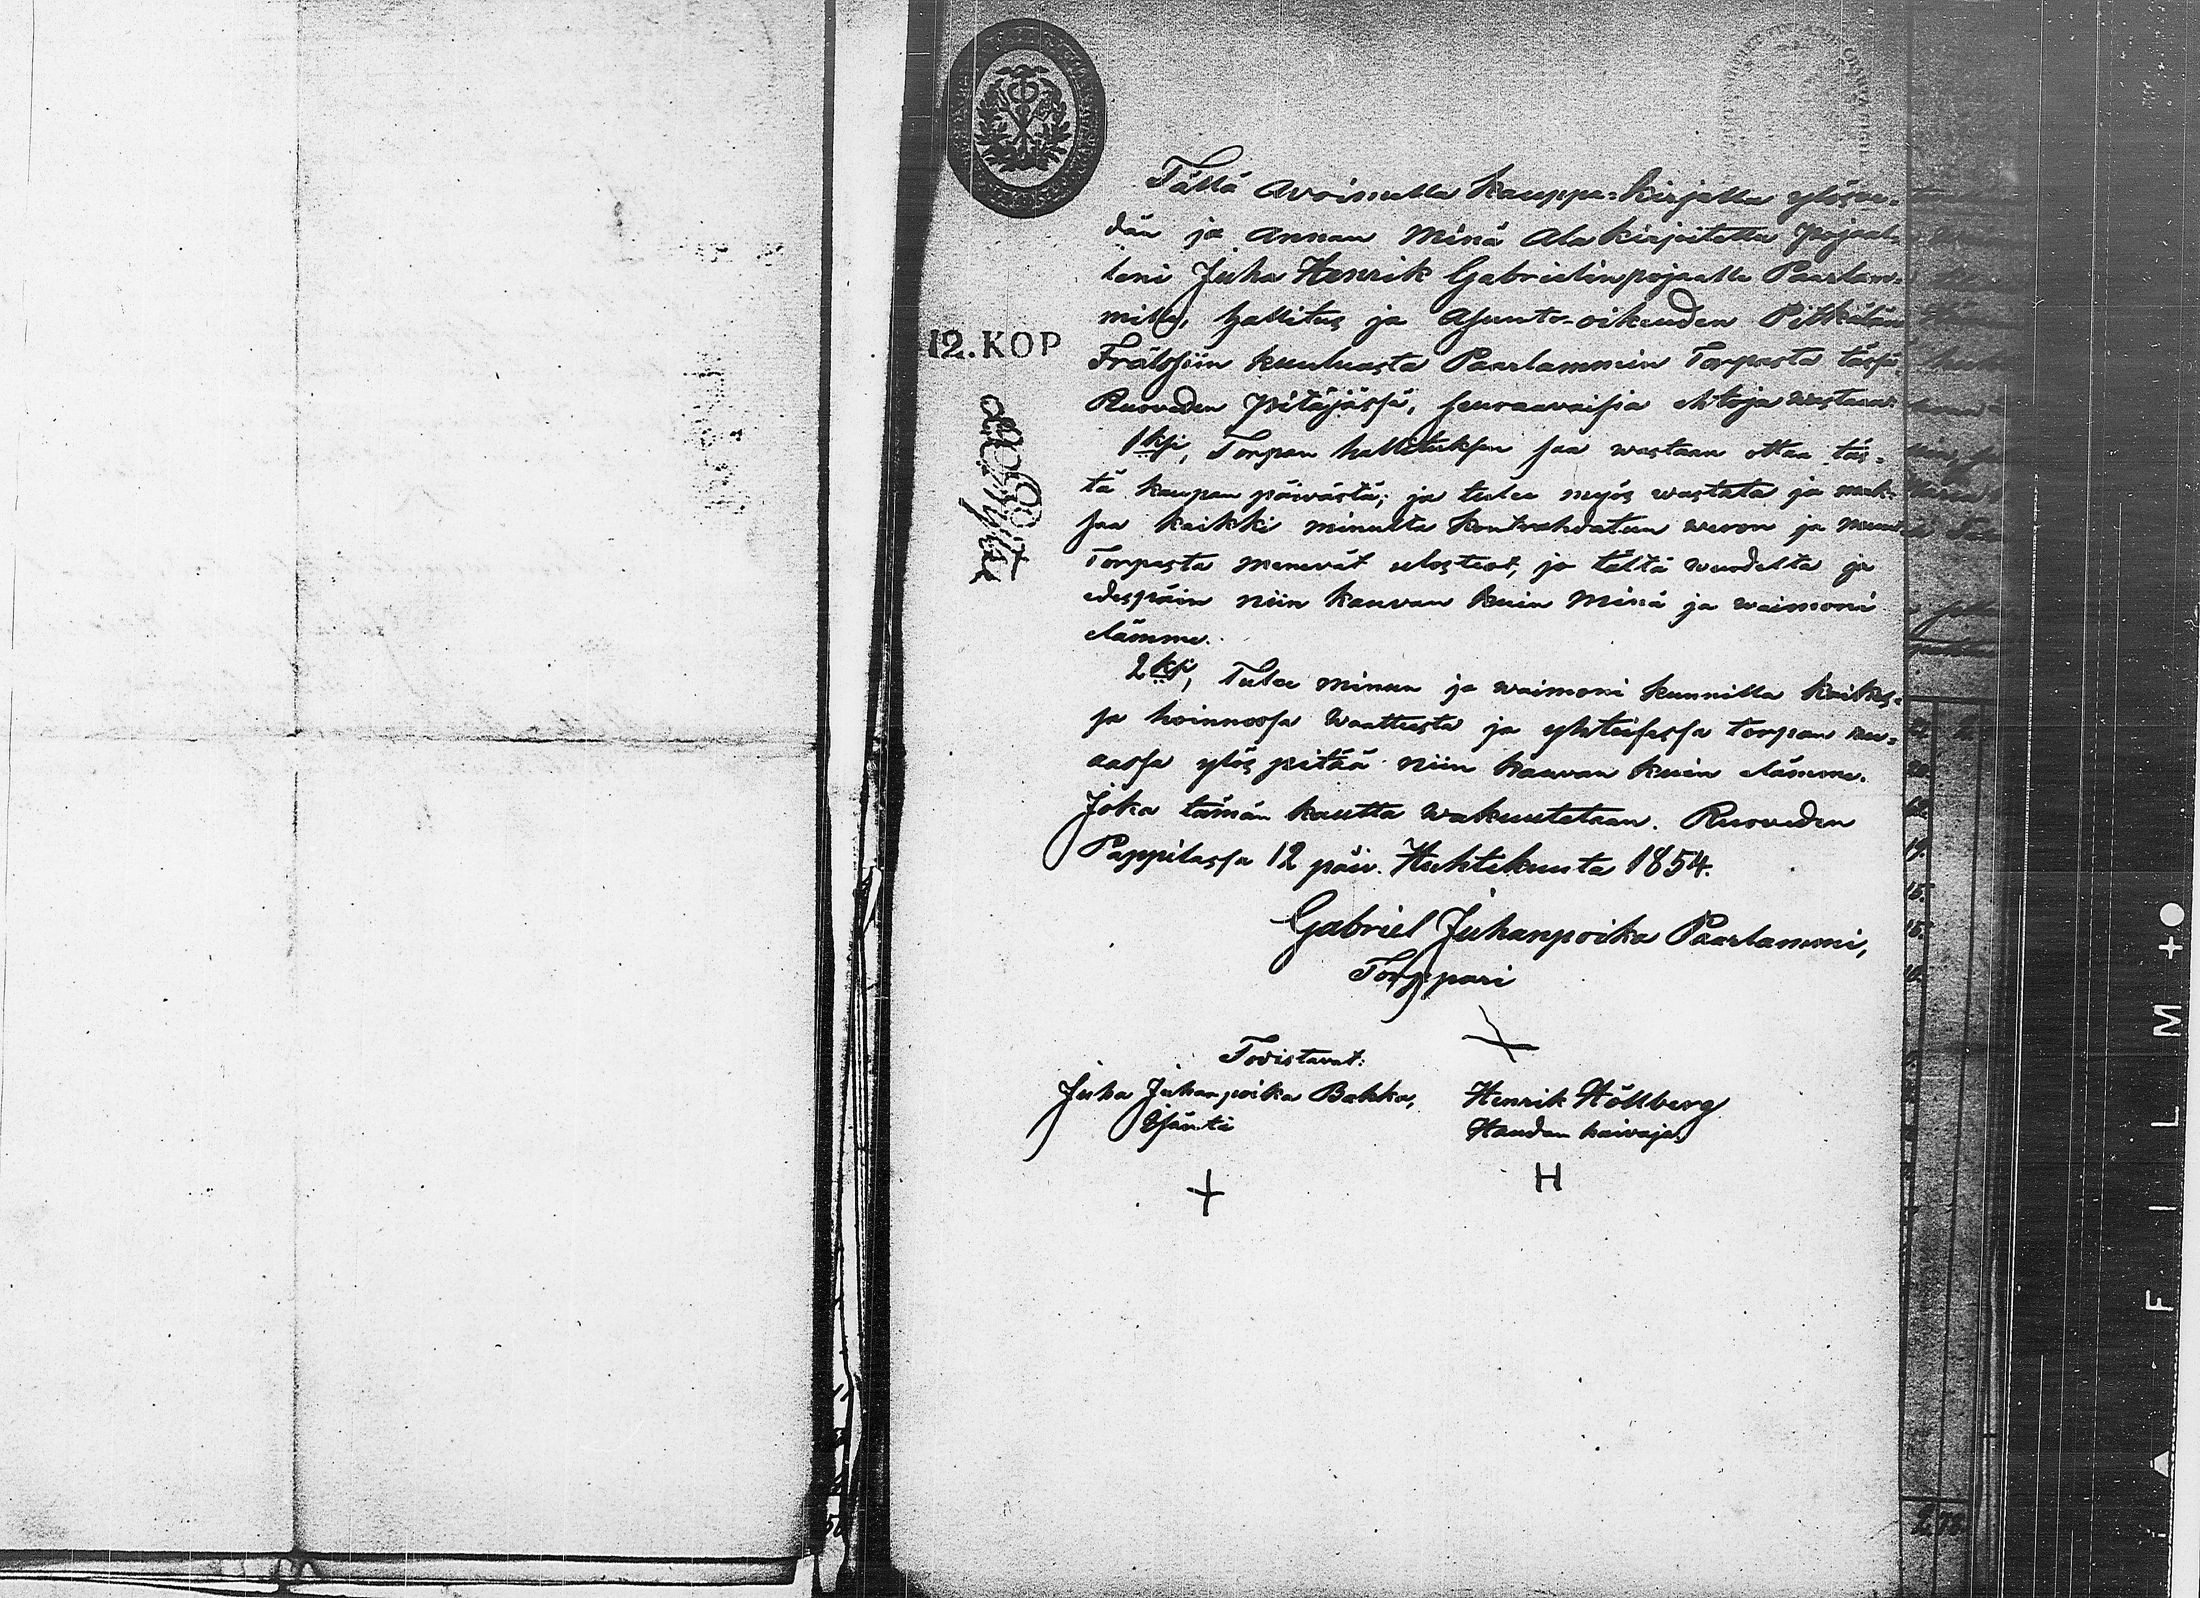 Tällä avoimella Kauppa-Kirjalla ylösve-
dän ja annan Minä Ala Kirjoitettu Pojal-
leni Juha Henrik Gabrielinpojaalle Paarlam-
mille, hallitus ja Asunto-oikeuden Pitkälän
Frälssiin kuuluvasta Paarlammin Torpasta tässä
Ruoveden Pitäjässä, seuraavaisia ehtoja wastaan
1ksi, Torpan hallituksen saa wastaan ottaa täs-
tä kaupan päivästä; ja tulee myös wastata ja mak-
saa kaikki minulta kontrahdatun weron ja muut
Torpasta menevät ulosteot, jo tältä wuodelta ja
edespäin niin kauvan kuin Minä ja waimoni
elämme.
2ksi, Tulee minun ja waimoni kunnilla kaikes-
sa hoinnossa waatteesta ja yhteisessa torpan ru-
aassa ylös pitää niin kauvan kuin elämme.
Joka tämän kautta wakuutetaan. Ruoveden
Pappilassa 12 päiv. Huhtekuuta 1854.
Gabriel Juhanpoika Paarlammi,
Torppari
Todistavat:
Juha Juhanpoika Bakka, Henrik Höllberg
Isäntä Haudan kaivaja.
H
12. KOP
FILM